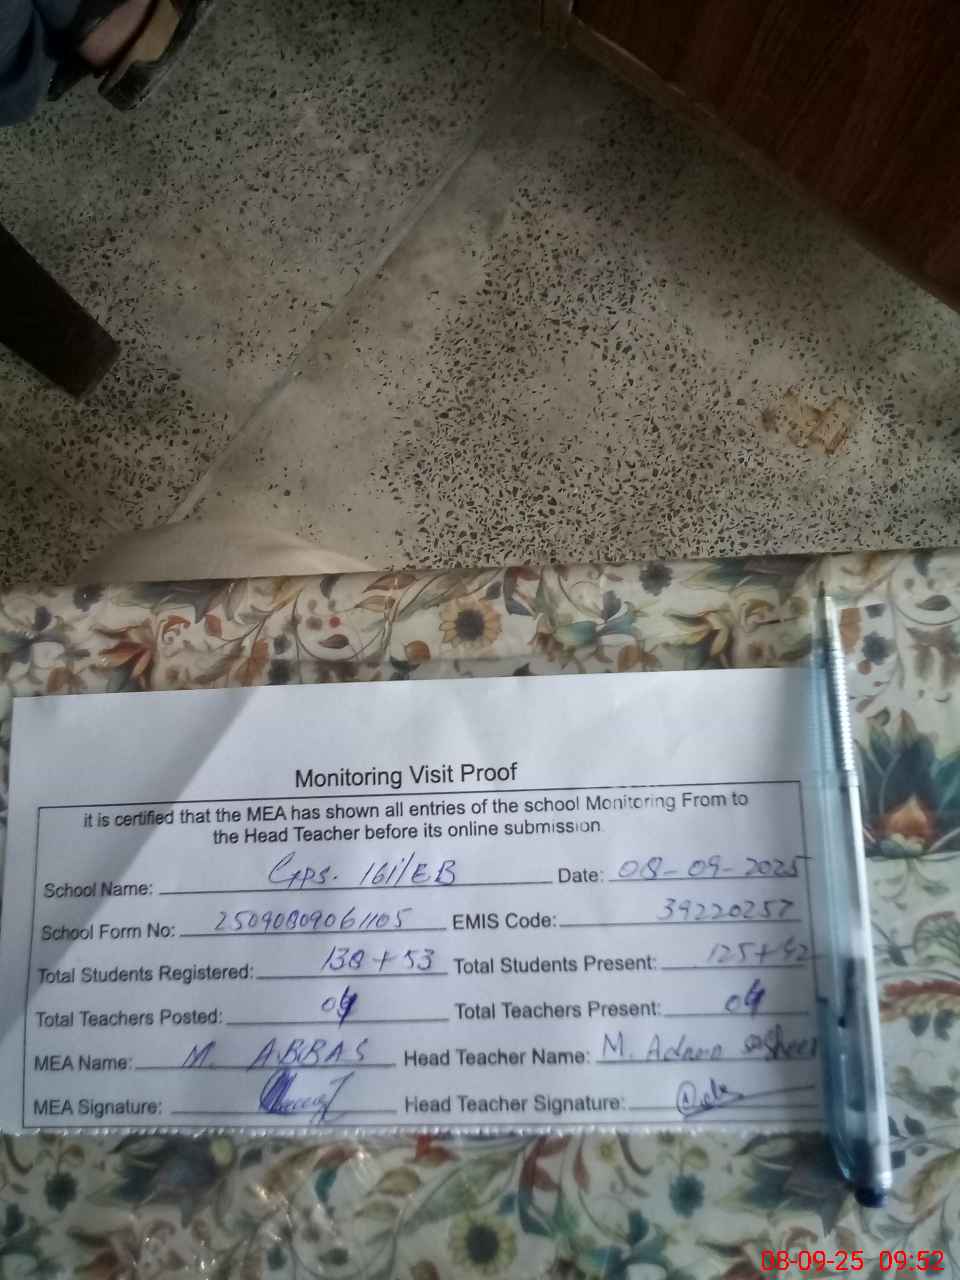 Monitoring Visit Proof
it is certified that the MEA has shown all entries of the school Monitoring From to
the Head Teacher before its online submission.
School Name: GPS. 161/EB Date: 08-09-2025
School Form No: 25090809061105 EMIS Code: 39220257
Total Students Registered: 138 + 53 Total Students Present: 125+42
Total Teachers Posted: 04 Total Teachers Present: 04
MEA Name: M. ABBAS Head Teacher Name: M.
MEA Signature: Head Teacher Signature:
08-09-25 09:52